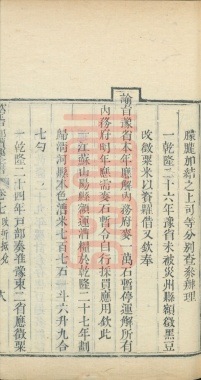 朦朧加結之上司等分別查參辦理
一乾隆二十六年豫省未被災州縣額徵黑豆
改徵粟米以資糴借又欽奉
諭旨豫省本年應解內務府麥一萬石暫停運解所有
內務府明年應需麥石暫令自行採買應用欽此
一江蘇山陽縣漁運漕糧於乾隆二十七年劃
歸清河縣本色漕米七百七石一斗六升九合
七勺
一乾隆二十四年戶部奏准豫東二省應徵粟